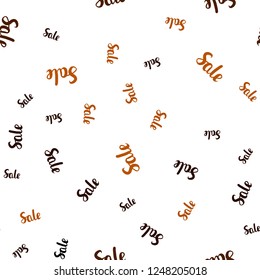 Sale
Sale
Sale
Sale
Sale
Sale
Sale
Sale
Sale
Sale
Sale
Sale
Sale
Sale
Sale
Sale
Sale
Sale
Sale
Sale
Sale
Sale
Sale
Sale
Sale
Sale
Sale
shutterstock.com · 1248205018